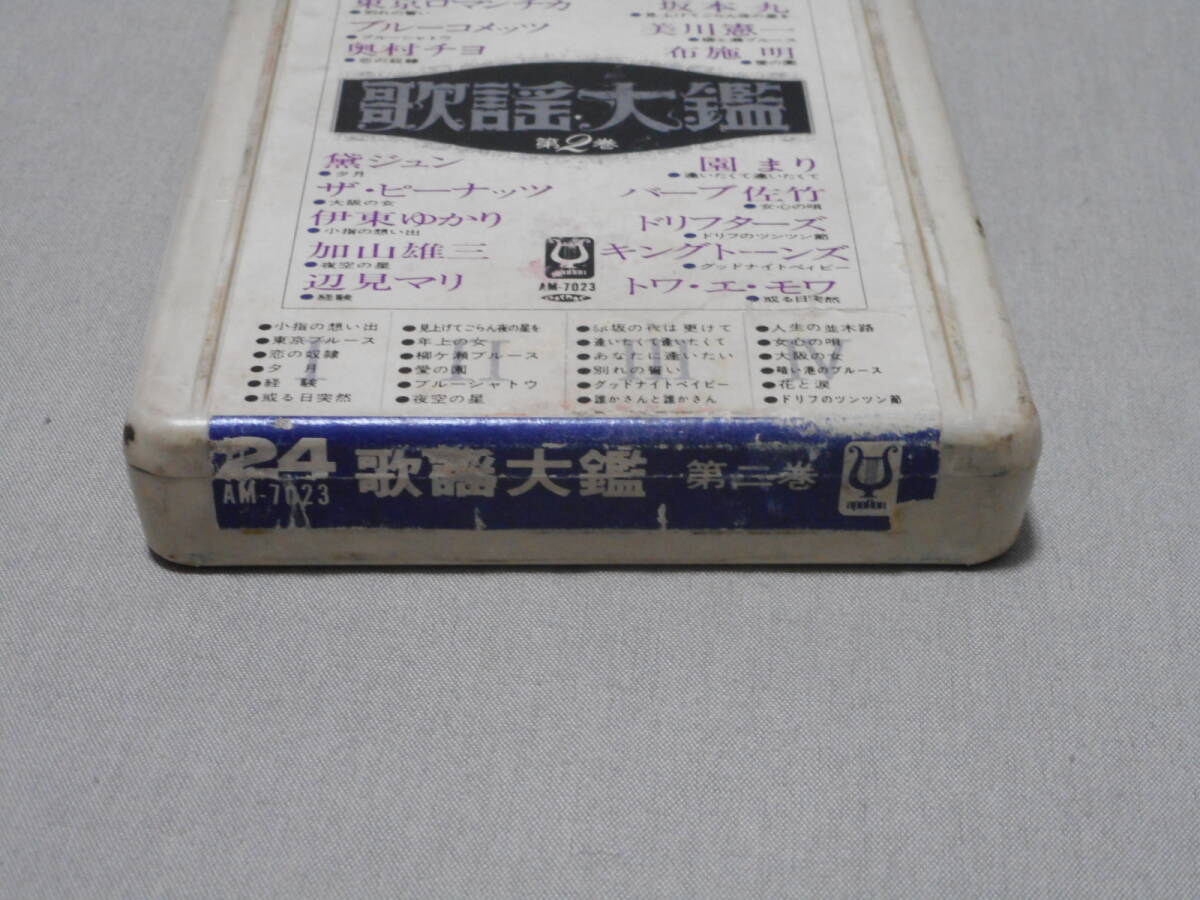 東京ロマンチカ
●別れの誓い
ブルーコメッツ
●ブルーシャトウ
奥村チヨ
●恋の奴隷
坂本九
●見上げてごらん夜の星を
美川憲一
●柳ヶ瀬ブルース
布施明
●愛の園
歌謡大鑑
第2巻
黛ジュン
●夕月
ザ・ピーナッツ
●大阪の女
伊東ゆかり
●小指の想い出
加山雄三
●夜空の星
辺見マリ
●経験
園まり
●逢いたくて逢いたくて
バーブ佐竹
●女心の唄
ドリフターズ
●ドリフのツンツン節
キングトーンズ
●グッドナイトベイビー
トワ・エ・モワ
●或る日突然
apollon
AM-7023
I
●小指の想い出
●東京ブルース
●恋の奴隷
●夕月
●経験
●或る日突然
II
●見上げてごらん夜の星を
●年上の女
●柳ケ瀬ブルース
●愛の園
●ブルーシャトウ
●夜空の星
III
坂の夜は更けて
●逢いたくて逢いたくて
●あなたに逢いたい
●別れの誓い
●グッドナイトベイビー
●誰かさんと誰かさん
IV
●人生の並木路
●女心の唄
●大阪の女
●暗い港のブルース
●花と涙
●ドリフのツンツン節
24
AM-7023
歌謡大鑑 第二巻
apollon